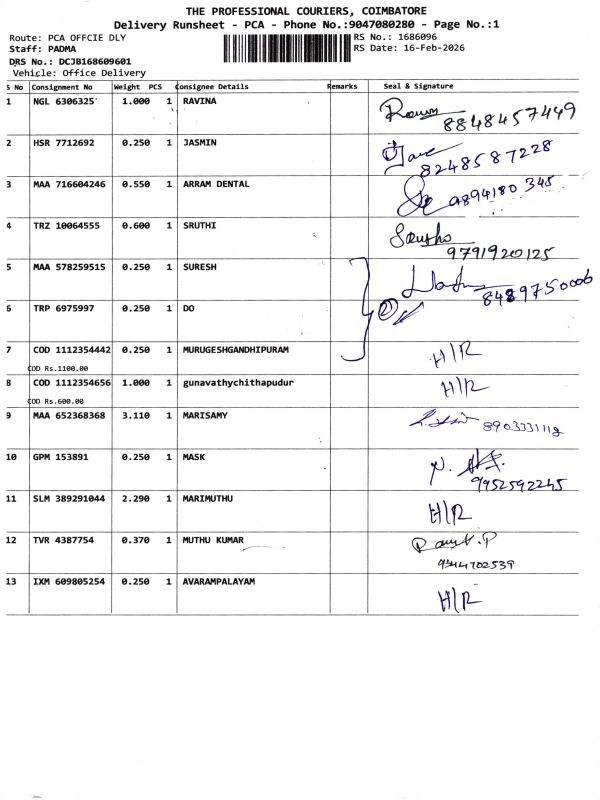 THE PROFESSIONAL COURIERS, COIMBATORE
Delivery Runsheet - PCA - Phone No.:9047080280 - Page No.:1
Route: PCA OFFCIE DLY
RS No.: 1686096
Staff: PADMA
RS Date: 16-Feb-2026
DRS No.: DCJB168609601
Vehicle: Office Delivery
S No Consignment No Weight PCS Consignee Details Remarks Seal & Signature
1 NGL 6306325 1.000 1 RAVINA
8848457449
2 HSR 7712692 0.250 1 JASMIN
8248587228
3 MAA 716604246 0.550 1 ARRAM DENTAL
9894180 345
4 TRZ 10064555 0.600 1 SRUTHI
9791920125
5 MAA 578259515 0.250 1 SURESH
8489750006
6 TRP 6975997 0.250 1 DO
2
7 COD 1112354442 0.250 1 MURUGESHGANDHIPURAM H/R
COD Rs.1100.00
8 COD 1112354656 1.000 1 gunavathychithapudur H/R
COD Rs.600.00
9 MAA 652368368 3.110 1 MARISAMY 8903331118
10 GPM 153891 0.250 1 MASK
9952592245
11 SLM 389291044 2.290 1 MARIMUTHU H/R
12 TVR 4387754 0.370 1 MUTHU KUMAR
9344702539
13 IXM 609805254 0.250 1 AVARAMPALAYAM H/R